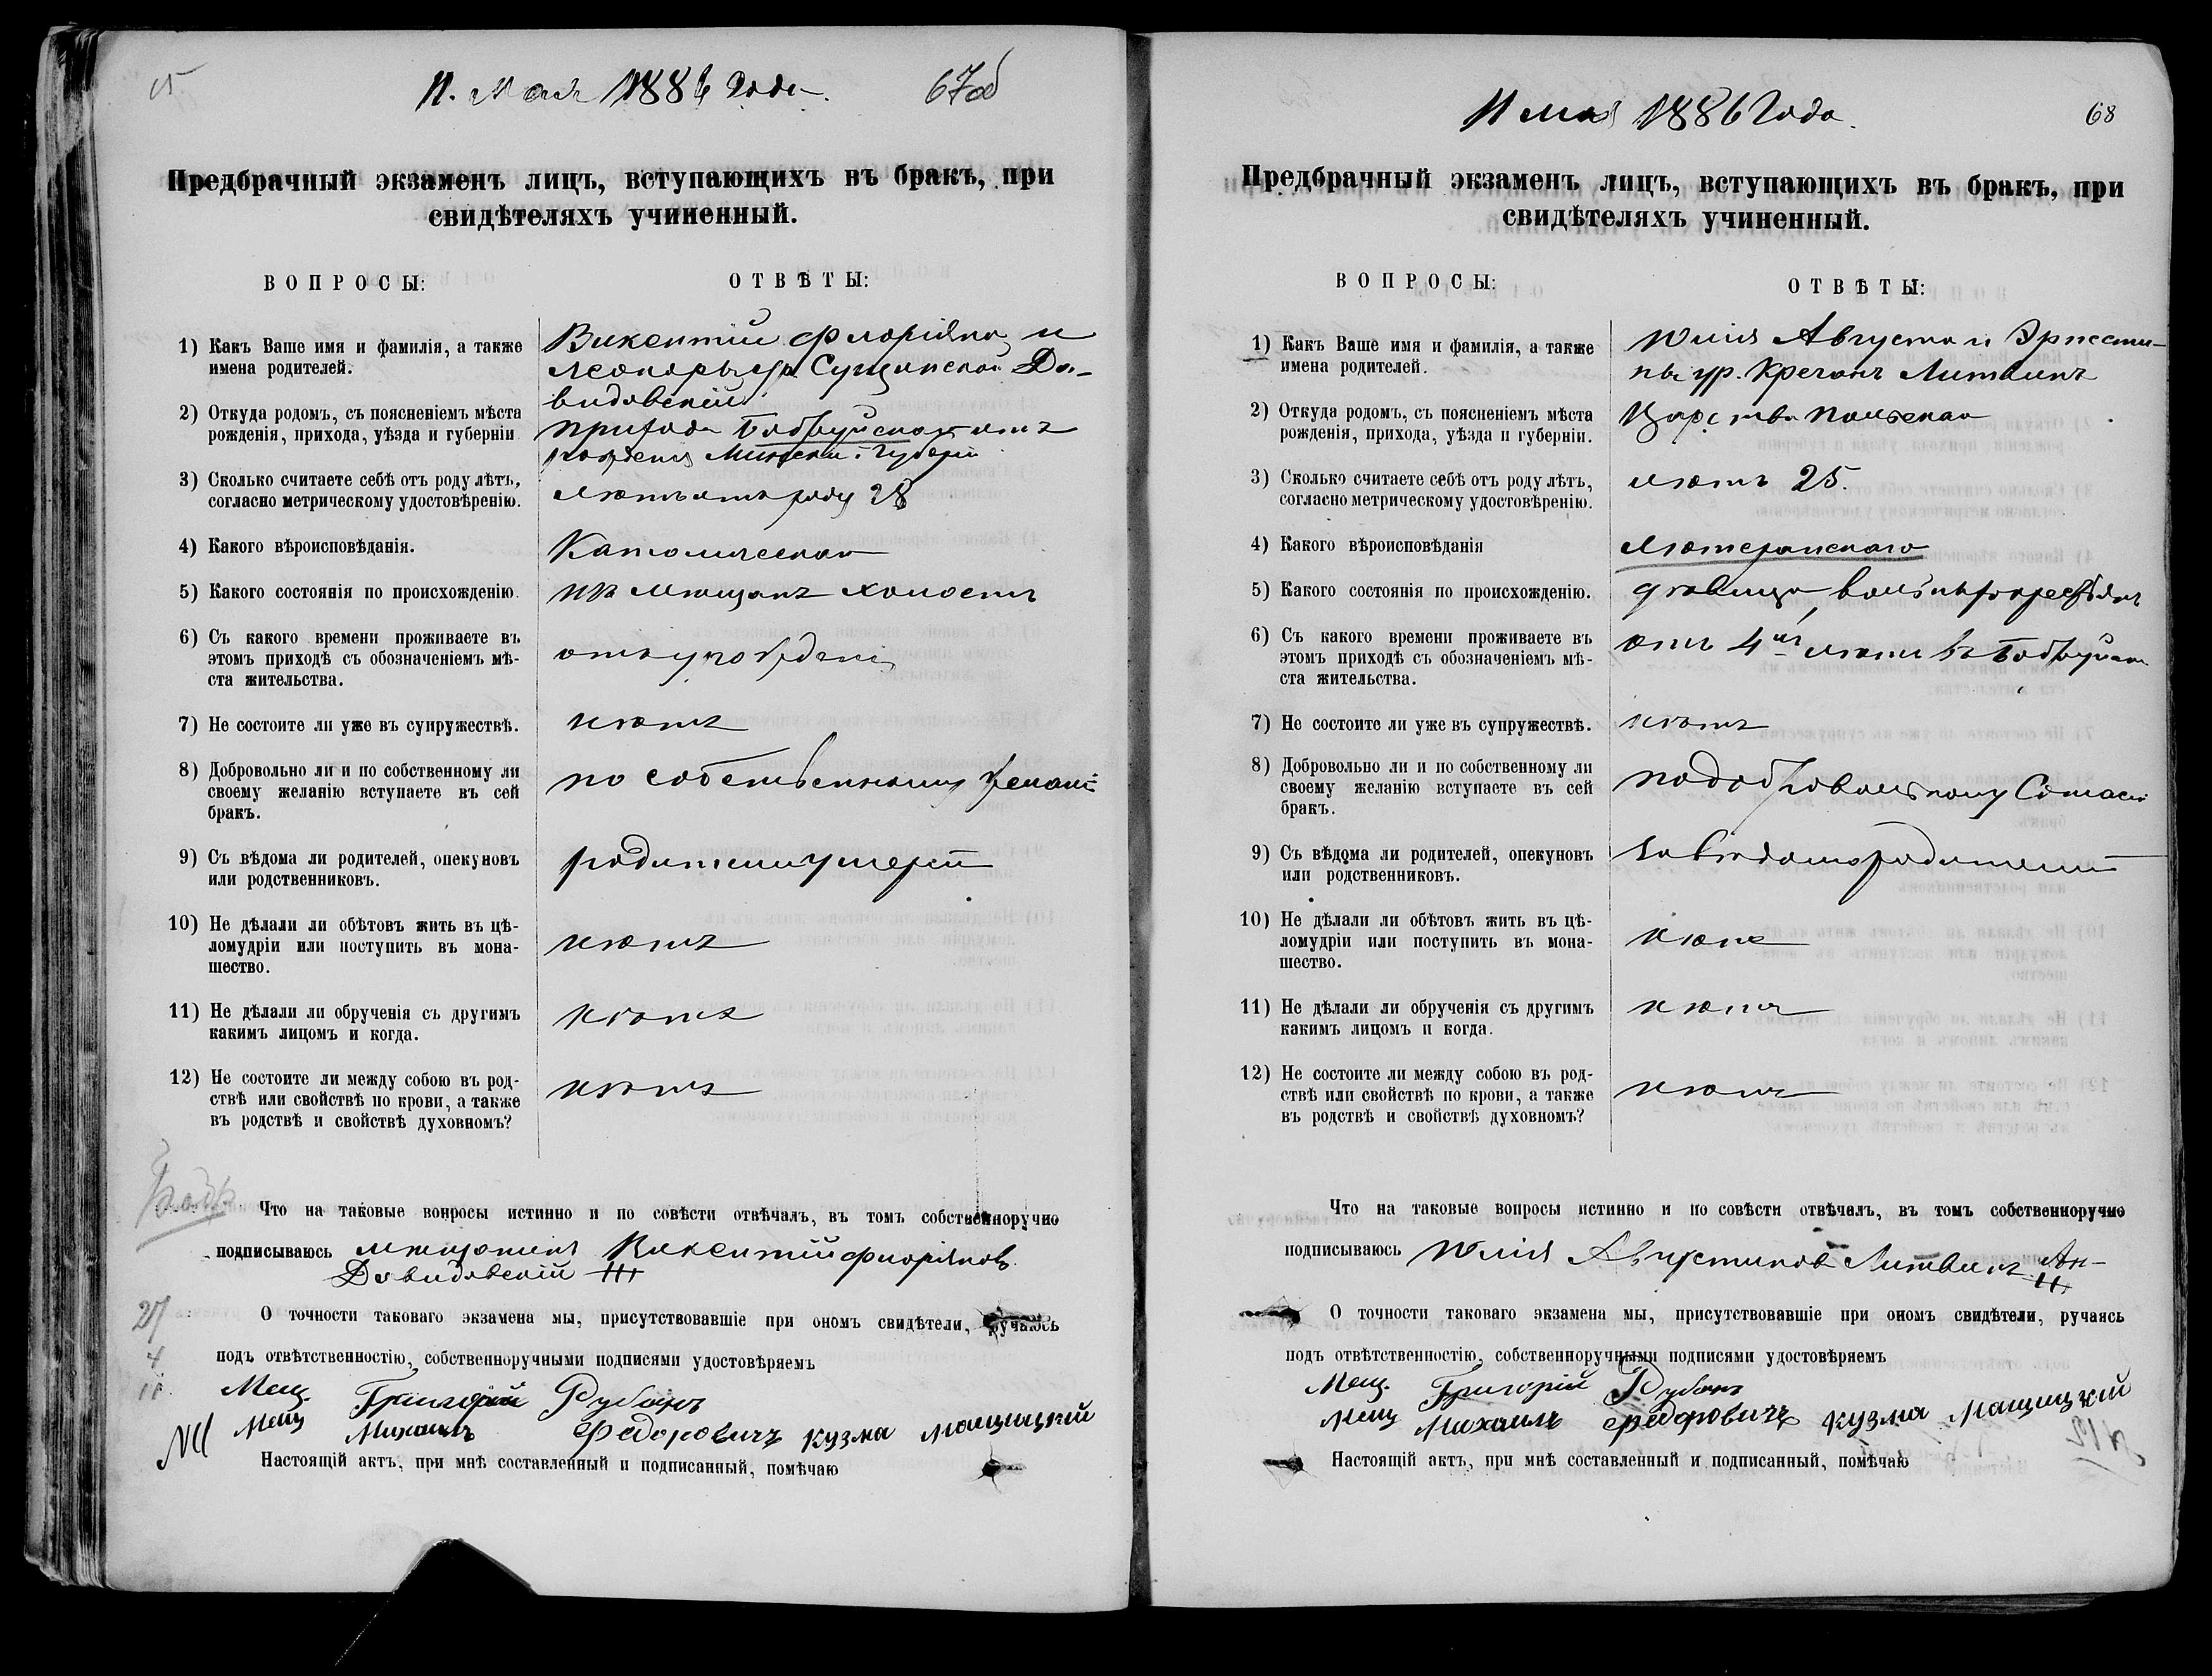 11. Мая 1886 Года.
67об
Предбрачный экзаменъ лицъ, вступающихъ въ бракъ, при
свидѣтеляхъ учиненный.
ВОПРОСЫ:
ОТВѢТЫ:
1) Какъ Ваше имя и фамилія, а также
имена родителей.
Викентій Флоріяна и
Леокоръ ур. Сущинской До-
видовскій
2) Откуда родомъ, съ поясненіемъ мѣста
рожденія, прихода, уѣзда и губерніи
прихода Бобруйскаго отъ
рожденія Минской Губерніи
3) Сколько считаете себѣ отъ роду лѣтъ,
согласно метрическому удостовѣренію.
лютъ отъ роду 28
4) Какого вѣроисповѣданія.
Католическаго
5) Какого состоянія по происхожденію.
изъ мющанъ холостъ
6) Съ какого времени проживаете въ
этомъ приходѣ съ обозначеніемъ мѣ-
ста жительства.
7) Не состоите ли уже въ супружествѣ.
нютъ
8) Добровольно ли и по собственному ли
своему желанію вступаете въ сей
бракъ.
по собственному желані
9) Съ вѣдома ли родителей, опекуновъ
или родственниковъ.
родители умерли
10) Не дѣлали ли обѣтовъ жить въ цѣ-
ломудріи или поступить въ мона-
шество.
нютъ
11) Не дѣлали ли обрученія съ другимъ
какимъ лицомъ и когда.
нютъ
12) Не состоите ли между собою въ род-
ствѣ или свойствѣ по крови, а также
въ родствѣ и свойствѣ духовномъ?
нютъ
Что на таковые вопросы истинно и по совѣсти отвѣчалъ, въ томъ собственноручно
подписываюсь мющанинъ Викентій Флоріяновъ
Довидовскій
О точности таковаго экзамена мы, присутствовавшіе при ономъ свидѣтели, ручаясь
подъ отвѣтственностію, собственноручными подписями удостовѣряемъ
Мещ. Григорій Рубанъ
Мещ Михаилъ Федоровичъ Кузма Мацицкій
Настоящій актъ, при мнѣ составленный и подписанный, помѣчаю
11 мая 1886 Года.
68
Предбрачный экзаменъ лицъ, вступающихъ въ бракъ, при
свидѣтеляхъ учиненный.
ВОПРОСЫ:
ОТВѢТЫ:
1) Какъ Ваше имя и фамилія, а также
имена родителей.
Юлія Августа и Эрнести-
ны ур. Креганъ Литвинъ
2) Откуда родомъ, съ поясненіемъ мѣста
рожденія, прихода, уѣзда и губерніи.
Царства Польскаго
3) Сколько считаете себѣ отъ роду лѣтъ,
согласно метрическому удостовѣренію.
лютъ 25.
4) Какого вѣроисповѣданія
Лютеранского
5) Какого состоянія по происхожденію.
6) Съ какого времени проживаете въ
этомъ приходѣ съ обозначеніемъ мѣ-
ста жительства.
отъ 4хъ лютъ въ Бобруйскѣ
7) Не состоите ли уже въ супружествѣ.
нютъ
8) Добровольно ли и по собственному ли
своему желанію вступаете въ сей
бракъ.
по добровольному Согласію
9) Съ вѣдома ли родителей, опекуновъ
или родственниковъ.
родителей
10) Не дѣлали ли обѣтовъ жить въ цѣ-
ломудріи или поступить въ мона-
шество.
нютъ
11) Не дѣлали ли обрученія съ другимъ
какимъ лицомъ и когда.
нютъ
12) Не состоите ли между собою въ род-
ствѣ или свойствѣ по крови, а также
въ родствѣ и свойствѣ духовномъ?
нютъ
Что на таковые вопросы истинно и по совѣсти отвѣчалъ, въ томъ собственноручно
подписываюсь Юлія Августинова Литвинъ
О точности таковаго экзамена мы, присутствовавшіе при ономъ свидѣтели, ручаясь
подъ отвѣтственностію, собственноручными подписями удостовѣряемъ
Мещ. Григорій Рубанъ
Мещ Михаилъ Федоровичъ Кузма Мащицкій
Настоящій актъ, при мнѣ составленный и подписанный, помѣчаю